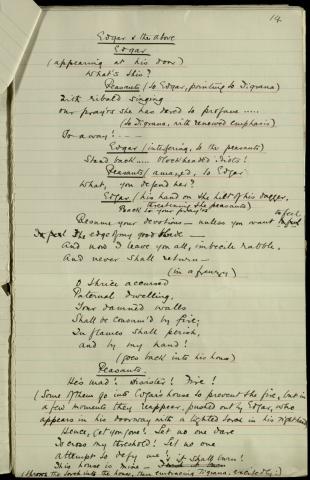 14.
Edgar & the above
Edgar
(appearing at his door)
What's this?
Peasants (to Edgar, pointing to Tigrana)
With ribald singing
our pray'rs she has dared to profane .....
(to Tigrana, with renewed emphasis)
Go away! - - -
Edgar (interfering, to the peasants)
Stand back .... blockheaded idiots!
Peasants (amazed, to Edgar)
What, you defend her?
Edgar (his hand on the hilt of his dagger,
threatening the peasants)
Back to your prayers
Resume your devotions — unless you want to feel
the edge of my good blade —
And now I leave you all, imbecile rabble,
And never shall return —
(in a frenzy)
O house accursed
Paternal dwelling,
Your damned walls
Shall be consum'd by fire;
In flames shall perish,
and by my hand!
(goes back into his house)
Peasants
He's mad! Disaster! Fire!
(Some of them go into Edgar's house to prevent the fire, but in
a few moments they reappear, pushed out by Edgar, who
appears in his doorway with a lighted torch in his right hand)
Hence, get you gone! Let no one dare
To cross my threshold! Let no one
attempt to defy me! it shall burn!
This house is mine —
(throws the torch into the house, then embracing Tigrana, excitedly:)